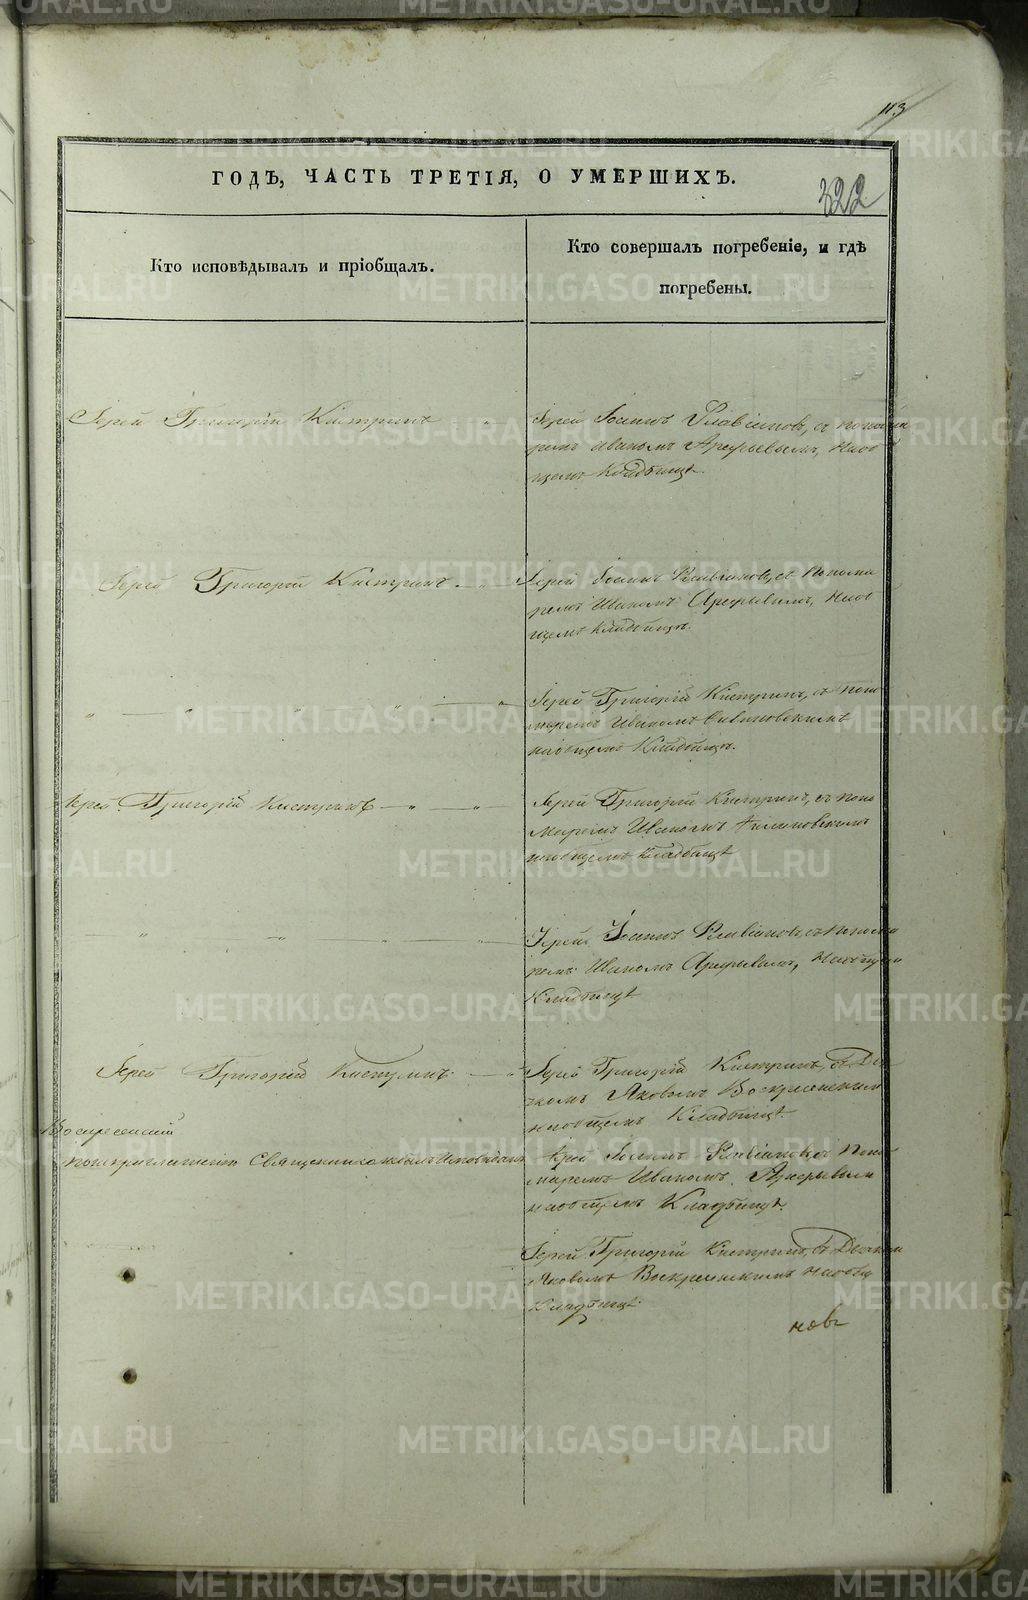 113
ГОДЪ, ЧАСТЬ ТРЕТІЯ, О УМЕРШИХЪ.
322
Кто исповѣдывалъ и пріобщалъ.
Кто совершалъ погребеніе, и гдѣ
погребены.
Іерей Григорій Кистринъ
Іерей Іоаннъ Флавіановъ, съ понома
ремъ Иваномъ Арефьевымъ, на об
щемъ Кладбищѣ.
Іерей Григорій Кистринъ
Іерей Іоаннъ Флавіановъ, съ понома
ремъ Иваномъ Арефьевымъ, на об
щемъ кладбищѣ.
Іерей Григорій Кистринъ, съ поно
маремъ Иваномъ
на общемъ Кладбищѣ.
Іерей Григорій Кистринъ
Іерей Григорій Кистринъ, съ поно
маремъ Иваномъ
на общемъ Кладбищѣ
Іерей Іоаннъ Флавіановъ, съ понома
ремъ Иваномъ Арефьевымъ, на общемъ
Кладбищѣ
Іерей Григорій Кистринъ
Іерей Григорій Кистринъ, съ Дья
комъ Яковомъ Воскресенскимъ
на общемъ Кладбищѣ
Воскресенскій
Священникомъ
Іерей Іоаннъ Флавіановъ, съ поно
маремъ Иваномъ Арефьевымъ
на общемъ Кладбищѣ.
Іерей Григорій Кистринъ, съ Дьякомъ
Яковомъ Воскресенскимъ на общ
Кладбищѣ.
METRIKI.GASO-URAL.RU